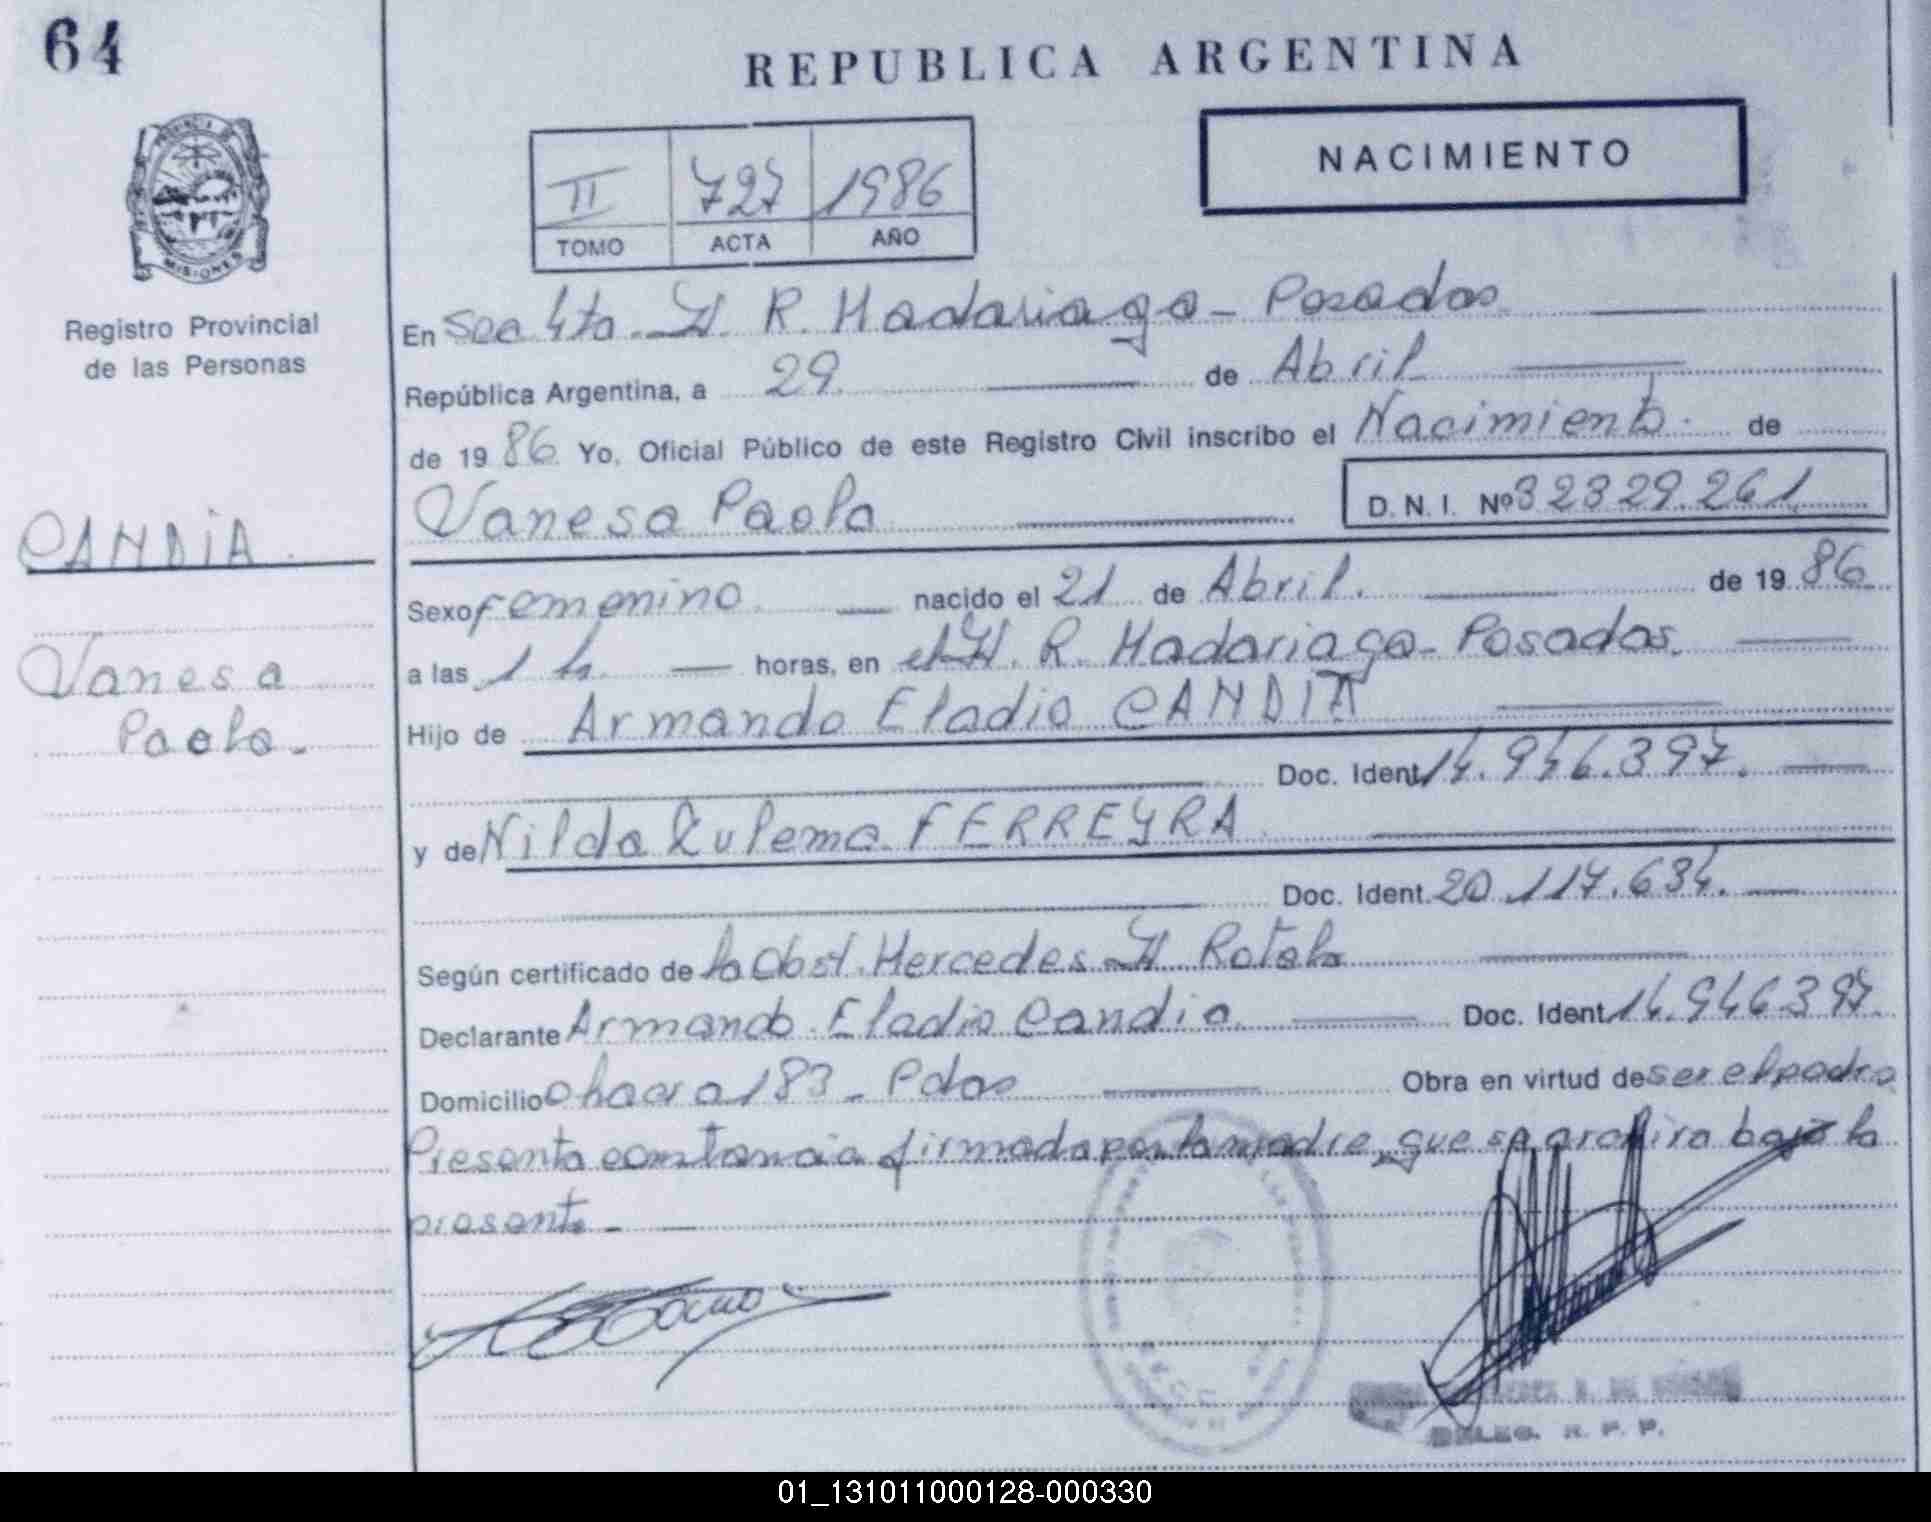 64
REPUBLICA ARGENTINA
NACIMIENTO
II 727 1986
TOMO ACTA AÑO
PROVINCIA DE
MISIONES
Registro Provincial
de las Personas
CANDIA
Vanesa
Paola.
En Sec 4ta. H. R. Madariaga - Posadas
República Argentina, a 29 de Abril
de 1986 Yo, Oficial Público de este Registro Civil inscribo el Nacimiento de
Vanesa Paola D. N. I. Nº 32329.261
Sexo femenino nacido el 21 de Abril. de 1986
a las 1 h. horas, en el H. R. Madariaga - Posadas.
Hijo de Armando Eladio CANDIA
Doc. Ident. 14.946.397.
y de Nilda Zulema FERREYRA
Doc. Ident. 20.117.634.
Según certificado de la Obst. Mercedes H Rotela
Declarante Armando Eladio Candia Doc. Ident. 14.946.397.
Domicilio chacra 183 - Pdas Obra en virtud de ser el padre
Presenta constancia firmada por la madre, que se archiva bajo la
presente -
DELEG. R. P. P.
01_131011000128-000330